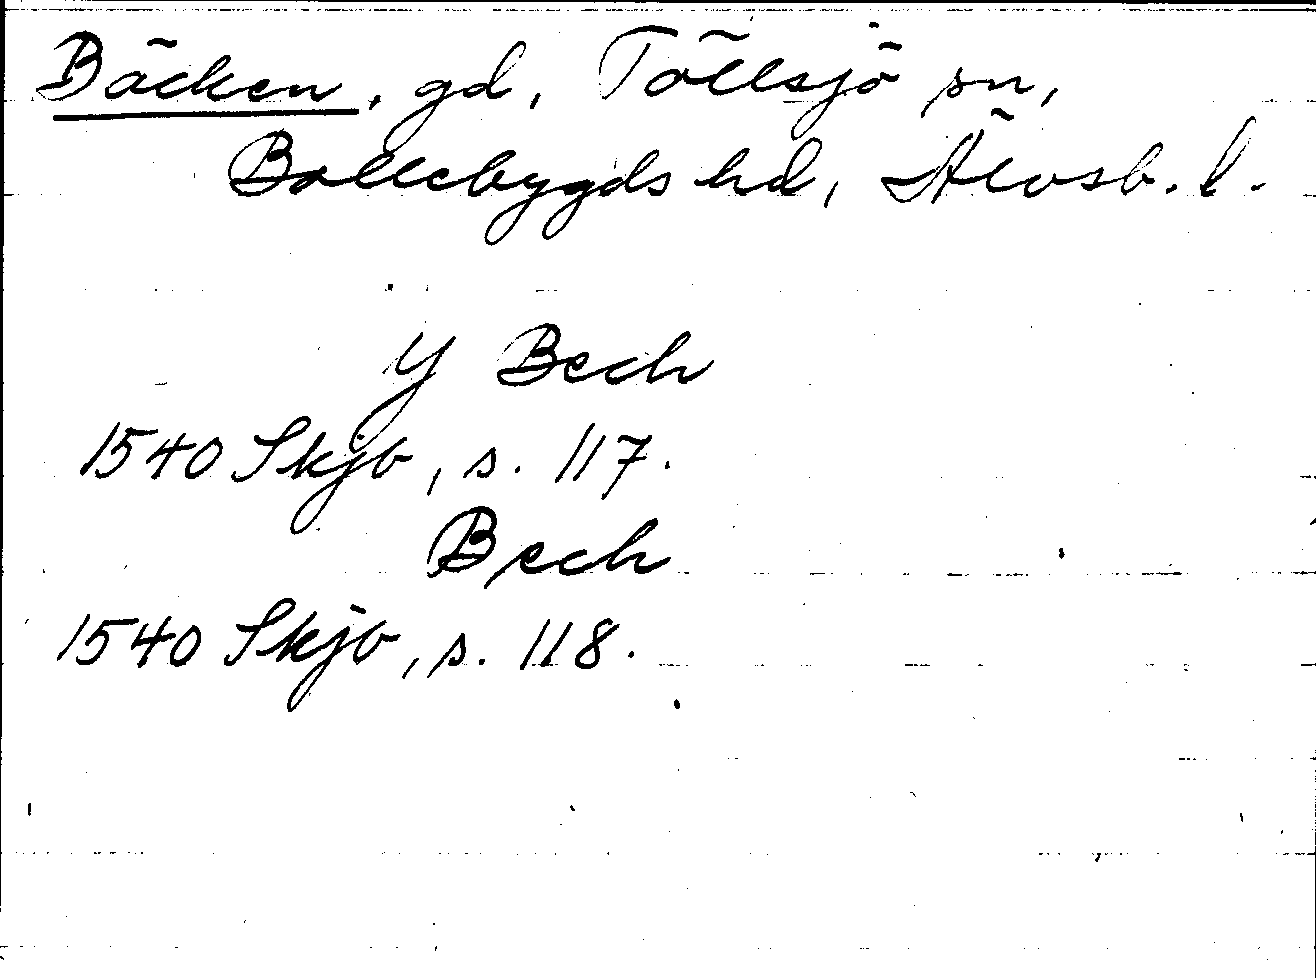 Bäcken, gd, Töllsjö sn,
Bollebygds hd, Älvsb. l.
Y Bech
1540 Skjb, s. 117.
Bech
1540 Skjb, s. 118.